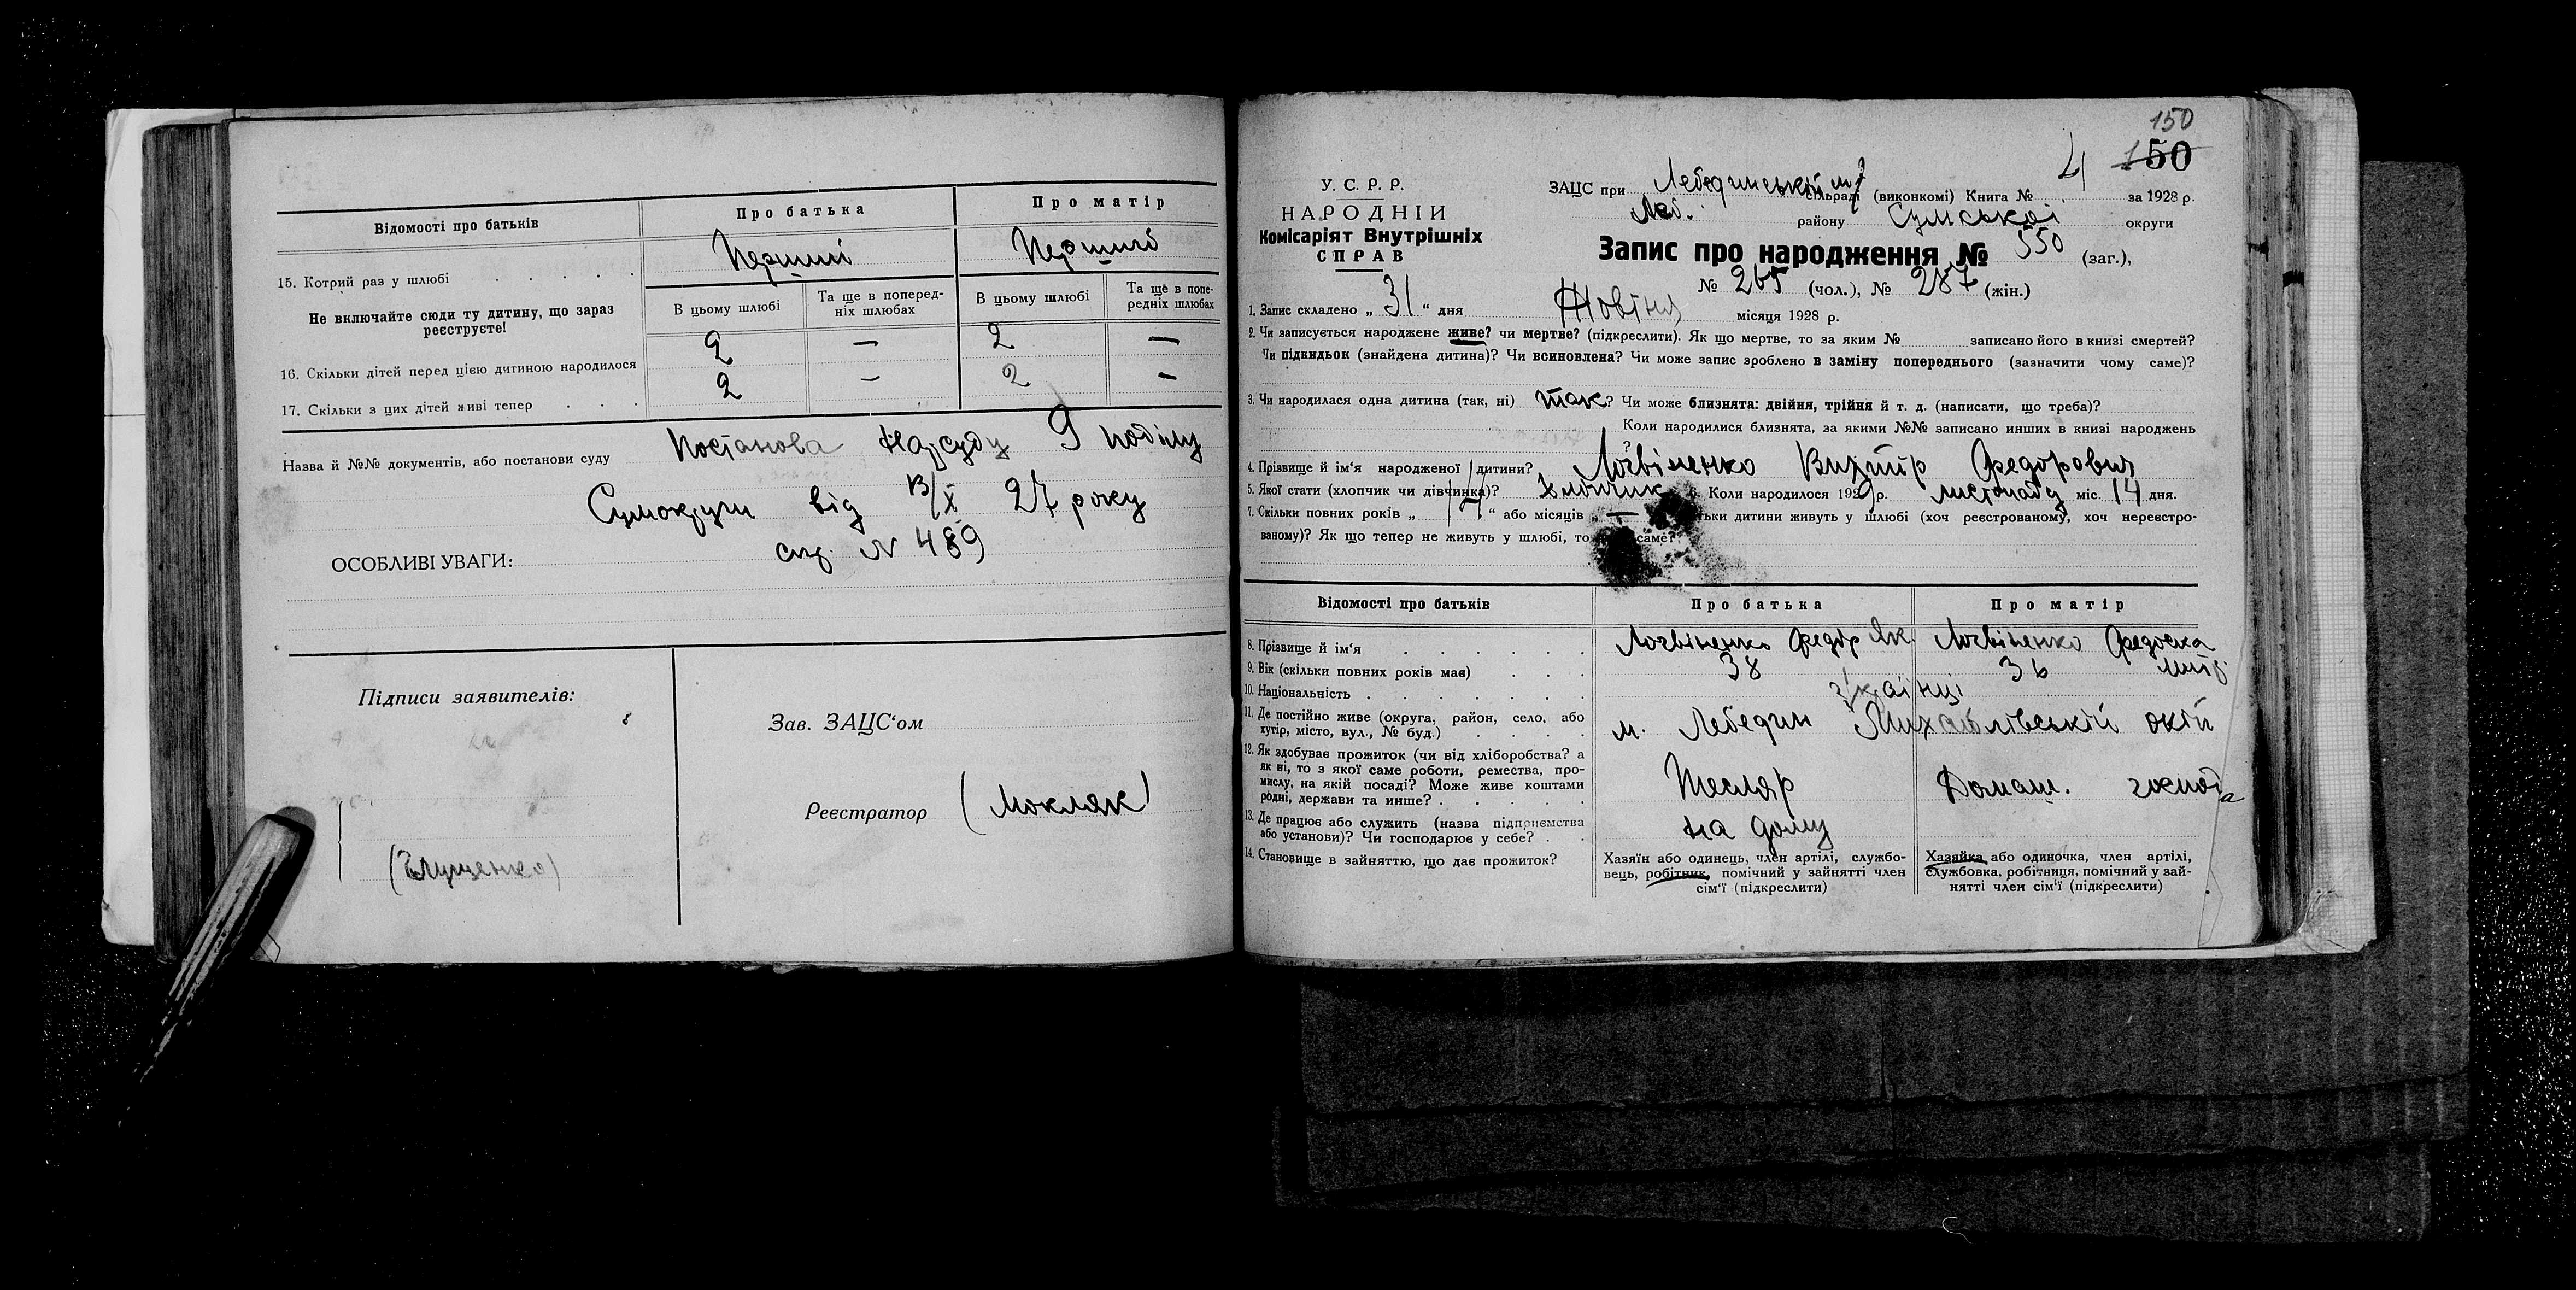 Відомості про батьків
Про батька
Про матір
15. Котрий раз у шлюбі
Перший
Перший
Не включайте сюди ту дитину, що зараз реєструєте!
В цьому шлюбі
Та ще в попередніх шлюбах
В цьому шлюбі
Та ще в попередніх шлюбах
16. Скільки дітей перед цією дитиною народилося
2 — 2 —
17. Скільки з цих дітей живі тепер
2 — 2 —
Назва й №№ документів, або постанови суду
Постанова Нарсуду 9
Сумокруги від 13/X 27 року
ОСОБЛИВІ УВАГИ:
N 489
Підписи заявителів:
Зав. ЗАЦС‘ом
Реєстратор (Мокляк)
150
150
У. С. Р. Р.
НАРОДНІЙ
Комісаріят Внутрішніх
СПРАВ
ЗАЦС при Лебединській сільраді (виконкомі) Книга № 4 за 1928 р.
Леб. району Сумської округи
Запис про народження № 550 (заг.),
№ 265 (чол.), № 287 (жін.)
1. Запис складено „ 31 “ дня Жовтня місяця 1928 р.
2. Чи записується народжене живе? чи мертве? (підкреслити). Як що мертве, то за яким № записано його в книзі смертей?
Чи підкидьок (знайдена дитина)? Чи всиновлена? Чи може запис зроблено в заміну попереднього (зазначити чому саме)?
3. Чи народилася одна дитина (так, ні) так? Чи може близнята: двійня, трійня й т. д. (написати, що треба)?
Коли народилися близнята, за якими №№ записано инших в книзі народжень
?
4. Прізвище й ім‘я народженої дитини? Логвіненко Віктор Федорович
5. Якої стати (хлопчик чи дівчинка)? хлопчик 6. Коли народилося 192 р. листопаду міс. 14 дня.
7. Скільки повних років „ “ або місяців „ — тьки дитини живуть у шлюбі (хоч реєстрованому, хоч нереєстро-
ваному)? Як що тепер не живуть у шлюбі, то саме?
Відомості про батьків
Про батька
Про матір
8. Прізвище й ім‘я
Логвіненко Федір Як.
Логвіненко Федоска
9. Вік (скільки повних років має)
38
36
10. Національність
українці
11. Де постійно живе (округа, район, село, або
хутір, місто, вул., № буд.)
м. Лебедин Михайлівській
12. Як здобуває прожиток (чи від хліборобства? а
як ні, то з якої саме роботи, ремества, про-
мислу, на якій посаді? Може живе коштами
родні, держави та инше?
Тесляр
Домаш. господа
13. Де працює або служить (назва підприємства
або установи)? Чи господарює у себе?
на дому
14. Становище в зайняттю, що дає прожиток?
Хазяїн або одинець, член артілі, службо-
вець, робітник, помічний у зайнятті член
сім‘ї (підкреслити)
Хазяйка або одиночка, член артілі,
службовка, робітниця, помічний у зай-
нятті член сім‘ї (підкреслити)